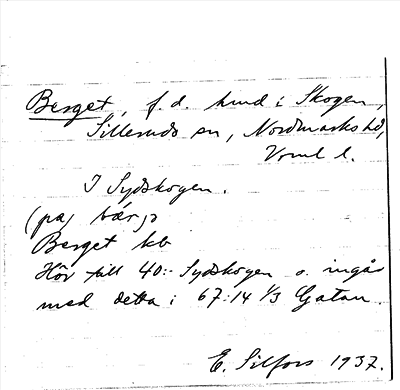 Berget, f.d. hmd i Skogen,
Silleruds sn, Nordmarks hd,
Vrml l.
I Sydskogen.
(på) bærjə
Berget kb
Hör till 40:- Sydskogen o. ingår
med detta i 67:14 1/3 Gatan.
E. Silfors 1937.